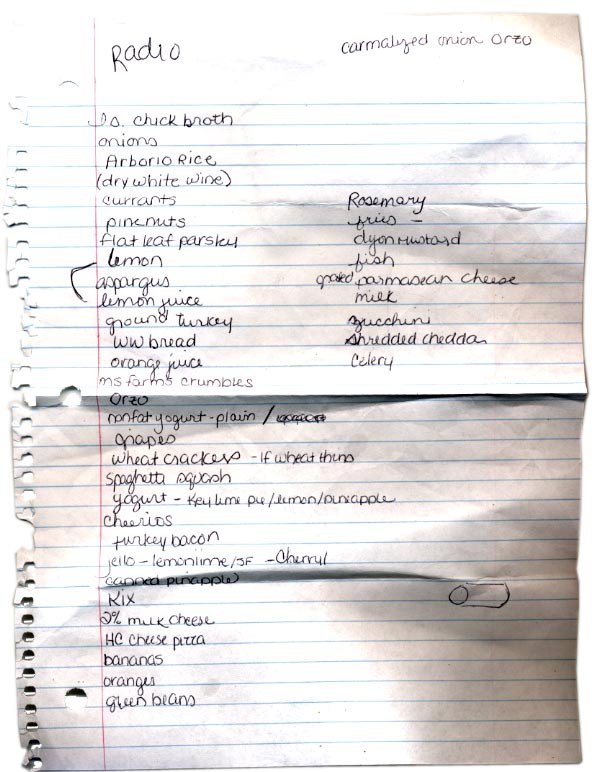 Radio
carmalized onion Orzo
ls. chick broth
onions
Arborio Rice
(dry white wine)
currants
pinenuts
flat leaf parsley
lemon
aspargus
lemon juice
ground turkey
WW bread
orange juice
ms farms crumbles
Orzo
nonfat yogurt - plain /
grapes
wheat crackers - lf wheat thins
spaghetti squash
yogurt - Key lime pie/lemon/pineapple
cheerios
turkey bacon
jello - lemonlime/SF - Cherry/
canned pineapple
Kix
2% milk cheese
HC cheese pizza
bananas
oranges
green beans
Rosemary
fries -
dyon mustard
fish
grated parmasean cheese
milk
zucchini
shredded chedda
Celery